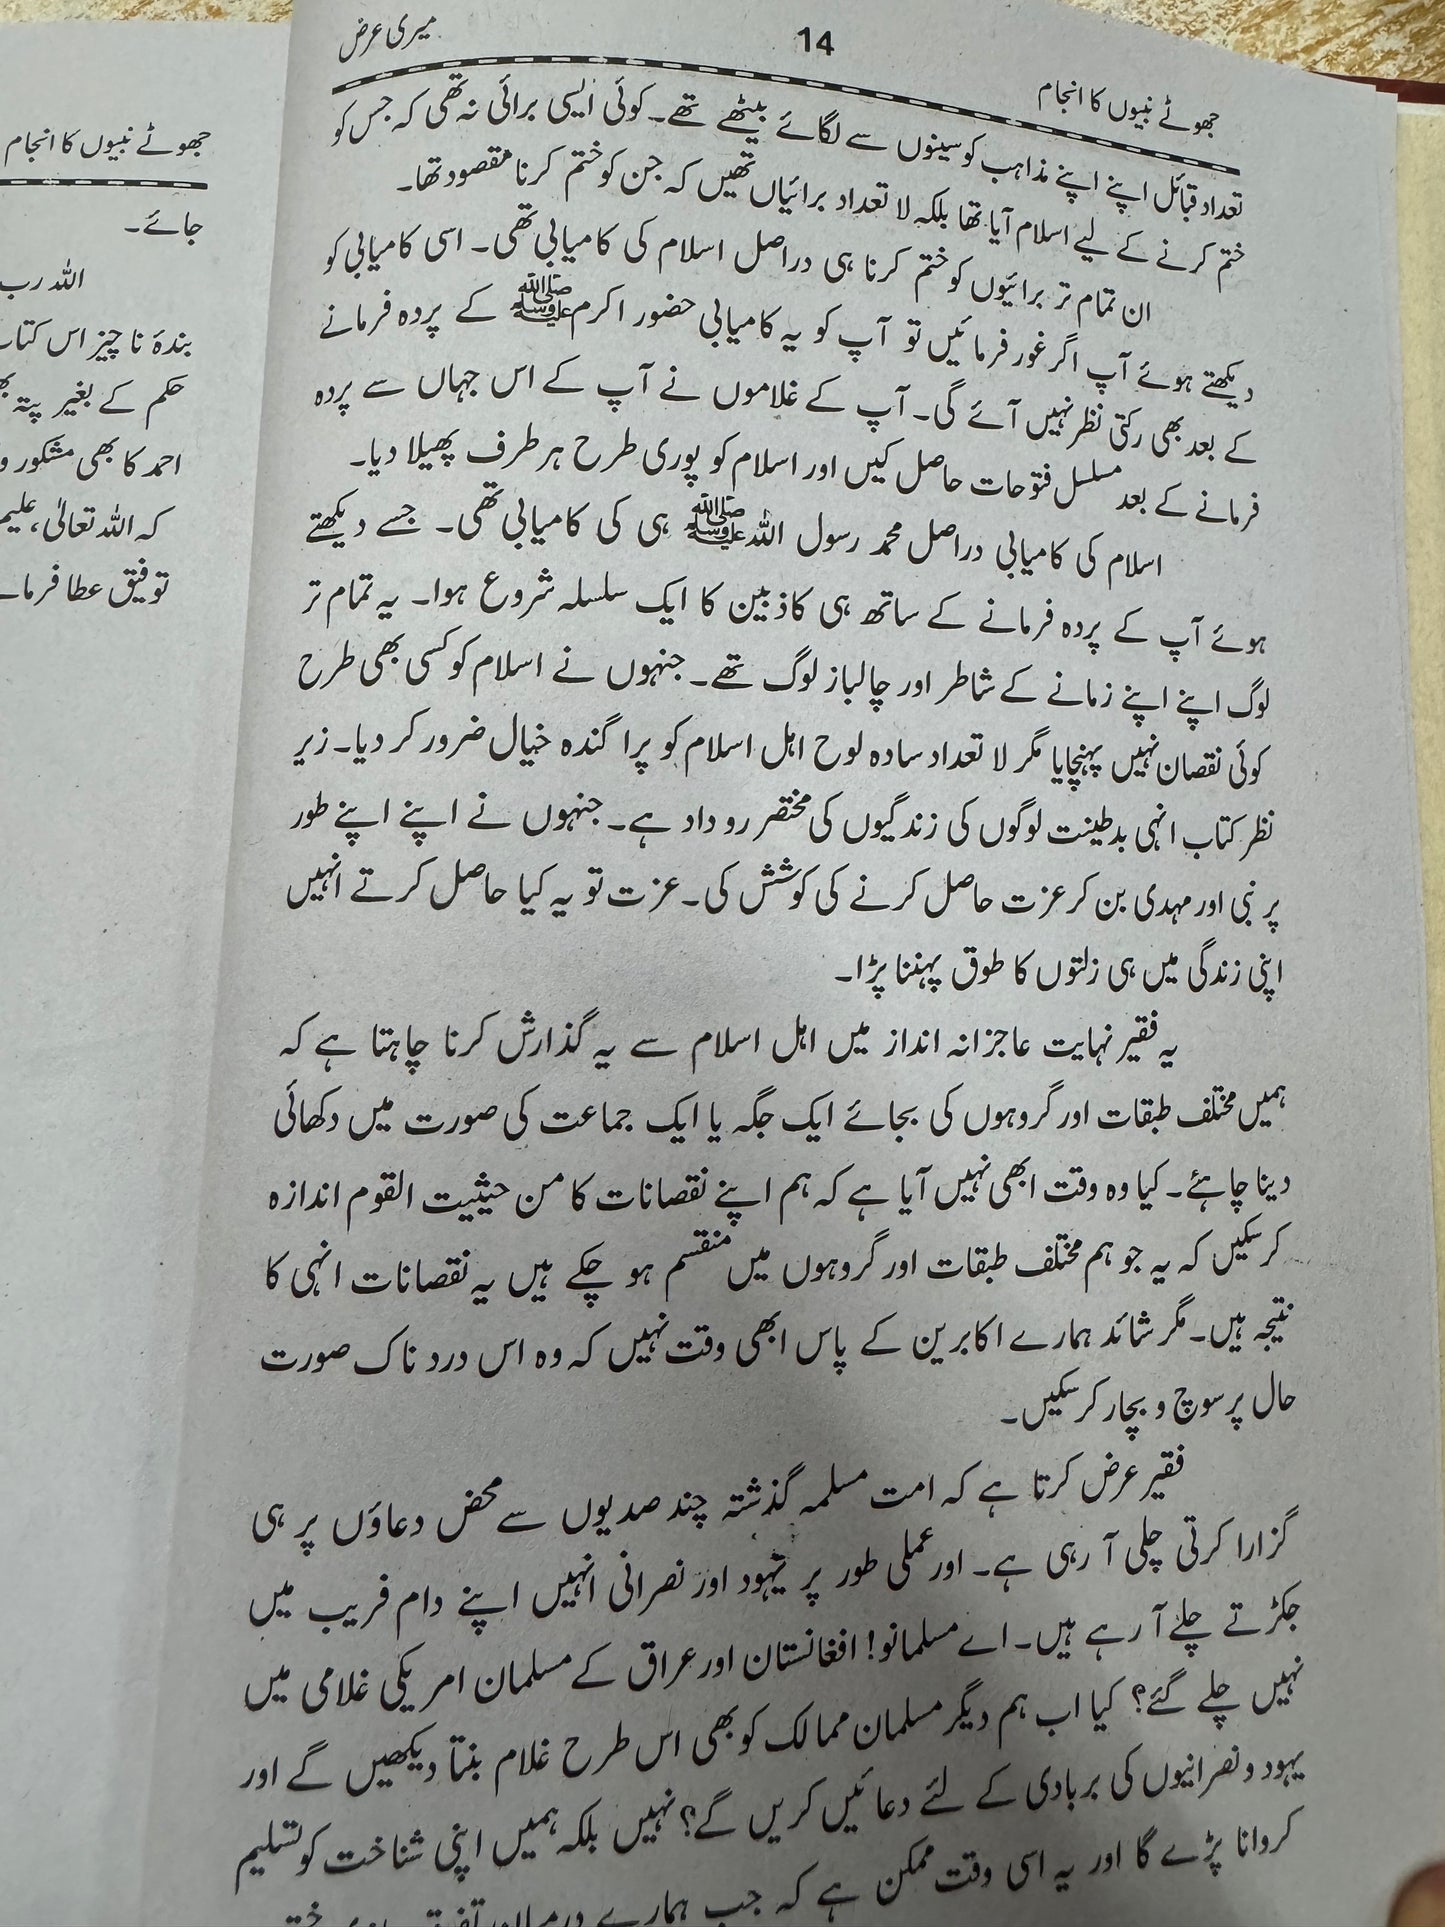 میری عرض
14
جھوٹے نبیوں کا انجام
تعداد قبائل اپنے اپنے مذاہب کو سینوں سے لگائے بیٹھے تھے۔ کوئی ایسی برائی نہ تھی کہ جس کو
ختم کرنے کے لیے اسلام آیا تھا بلکہ لا تعداد برائیاں تھیں کہ جن کو ختم کرنا مقصود تھا۔
ان تمام تر برائیوں کو ختم کرنا ہی دراصل اسلام کی کامیابی تھی۔ اسی کامیابی کو
دیکھتے ہوئے آپ اگر غور فرمائیں تو آپ کو یہ کامیابی حضور اکرم ﷺ کے پردہ فرمانے
کے بعد بھی رکتی نظر نہیں آئے گی۔ آپ کے غلاموں نے آپ کے اس جہاں سے پردہ
فرمانے کے بعد مسلسل فتوحات حاصل کیں اور اسلام کو پوری طرح ہر طرف پھیلا دیا۔
اسلام کی کامیابی دراصل محمد رسول اللہ ﷺ ہی کی کامیابی تھی۔ جسے دیکھتے
ہوئے آپ کے پردہ فرمانے کے ساتھ ہی کاذبین کا ایک سلسلہ شروع ہوا۔ یہ تمام تر
لوگ اپنے اپنے زمانے کے شاطر اور چالباز لوگ تھے۔ جنہوں نے اسلام کو کسی بھی طرح
کوئی نقصان نہیں پہنچایا مگر لا تعداد سادہ لوح اہل اسلام کو پراگندہ خیال ضرور کر دیا۔ زیر
نظر کتاب انہی بدطینت لوگوں کی زندگیوں کی مختصر روداد ہے۔ جنہوں نے اپنے اپنے طور
پر نبی اور مہدی بن کر عزت حاصل کرنے کی کوشش کی۔ عزت تو یہ کیا حاصل کرتے انہیں
اپنی زندگی میں ہی زلتوں کا طوق پہننا پڑا۔
یہ فقیر نہایت عاجزانہ انداز میں اہل اسلام سے یہ گذارش کرنا چاہتا ہے کہ
ہمیں مختلف طبقات اور گروہوں کی بجائے ایک جگہ یا ایک جماعت کی صورت میں دکھائی
دینا چاہئے۔ کیا وہ وقت ابھی نہیں آیا ہے کہ ہم اپنے نقصانات کا من حیثیت القوم اندازہ
کر سکیں کہ یہ جو ہم مختلف طبقات اور گروہوں میں منقسم ہو چکے ہیں یہ نقصانات انہی کا
نتیجہ ہیں۔ مگر شائد ہمارے اکابرین کے پاس ابھی وقت نہیں کہ وہ اس دردناک صورت
حال پر سوچ و بچار کر سکیں۔
فقیر عرض کرتا ہے کہ امت مسلمہ گذشتہ چند صدیوں سے محض دعاؤں پر ہی
گزارا کرتی چلی آ رہی ہے۔ اور عملی طور پر یہود اور نصرانی انہیں اپنے دام فریب میں
جکڑتے چلے آ رہے ہیں۔ اے مسلمانو! افغانستان اور عراق کے مسلمان امریکی غلامی میں
نہیں چلے گئے؟ کیا اب ہم دیگر مسلمان ممالک کو بھی اس طرح غلام بنتا دیکھیں گے اور
یہود و نصرانیوں کی بربادی کے لئے دعائیں کریں گے؟ نہیں بلکہ ہمیں اپنی شناخت کو تسلیم
کروانا پڑے گا اور یہ اسی وقت ممکن ہے کہ جب ہمارے درمیان
جھوٹے نبیوں کا انجام
جائے۔
اللہ رب
بندۂ ناچیز اس کتاب
حکم کے بغیر پتہ
احمد کا بھی مشکور و
کہ اللہ تعالیٰ،
توفیق عطا فرمائے